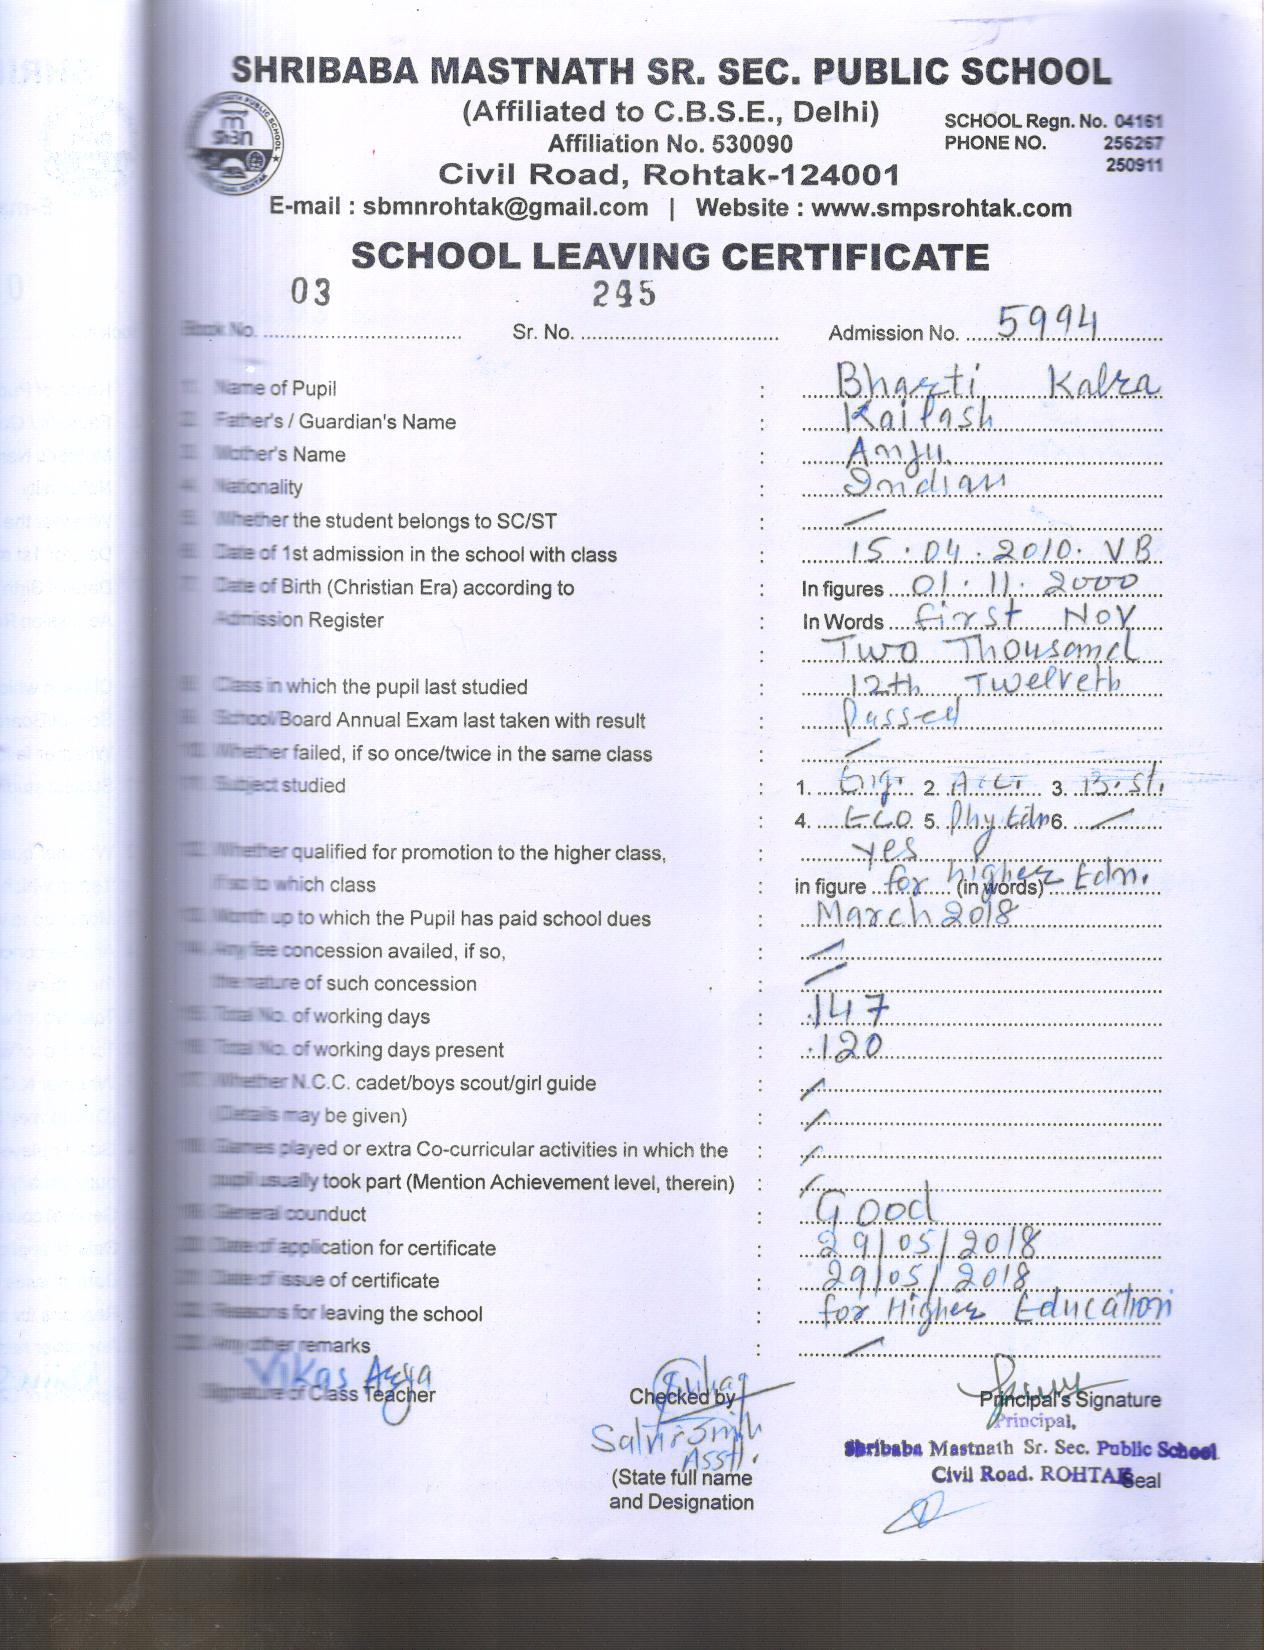 SHRIBABA MASTNATH SR. SEC. PUBLIC SCHOOL
(Affiliated to C.B.S.E., Delhi)
SCHOOL Regn. No. 04161
Affiliation No. 530090
PHONE NO. 256267
250911
Civil Road, Rohtak-124001
E-mail : sbmnrohtak@gmail.com | Website : www.smpsrohtak.com
SCHOOL LEAVING CERTIFICATE
03 245
Book No. Sr. No. Admission No. 5994
1. Name of Pupil : Bharti Kalra
2. Father's / Guardian's Name : Kailash
3. Mother's Name : Anju
4. Nationality : Indian
5. Whether the student belongs to SC/ST : /
6. Date of 1st admission in the school with class : 15.04.2010. VB
7. Date of Birth (Christian Era) according to : In figures 01.11.2000
Admission Register : In Words First Nov
: Two Thousand
8. Class in which the pupil last studied : 12th Twelveth
9. School/Board Annual Exam last taken with result : Passed
10. Whether failed, if so once/twice in the same class : /
11. Subject studied : 1. Eng. 2. Acc. 3. B.st.
: 4. Eco 5. Phy Edn 6. /
12. Whether qualified for promotion to the higher class, : yes
if so to which class : in figure for higher (in words) Edn.
13. Month up to which the Pupil has paid school dues : March 2018
14. Any fee concession availed, if so, : /
the nature of such concession : /
15. Total No. of working days : 147
16. Total No. of working days present : 120
17. Whether N.C.C. cadet/boys scout/girl guide : /
(Details may be given) : /
18. Games played or extra Co-curricular activities in which the : /
pupil usually took part (Mention Achievement level, therein) : /
19. General counduct : Good
20. Date of application for certificate : 29/05/2018
21. Date of issue of certificate : 29/05/2018
22. Reasons for leaving the school : for Higher Education
23. Any other remarks : /
Vikas Arya
Signature of Class Teacher Checked by Principal's Signature
Principal,
Asstt.
Shribaba Mastnath Sr. Sec. Public School
Civil Road. ROHTAK
Seal
(State full name
and Designation